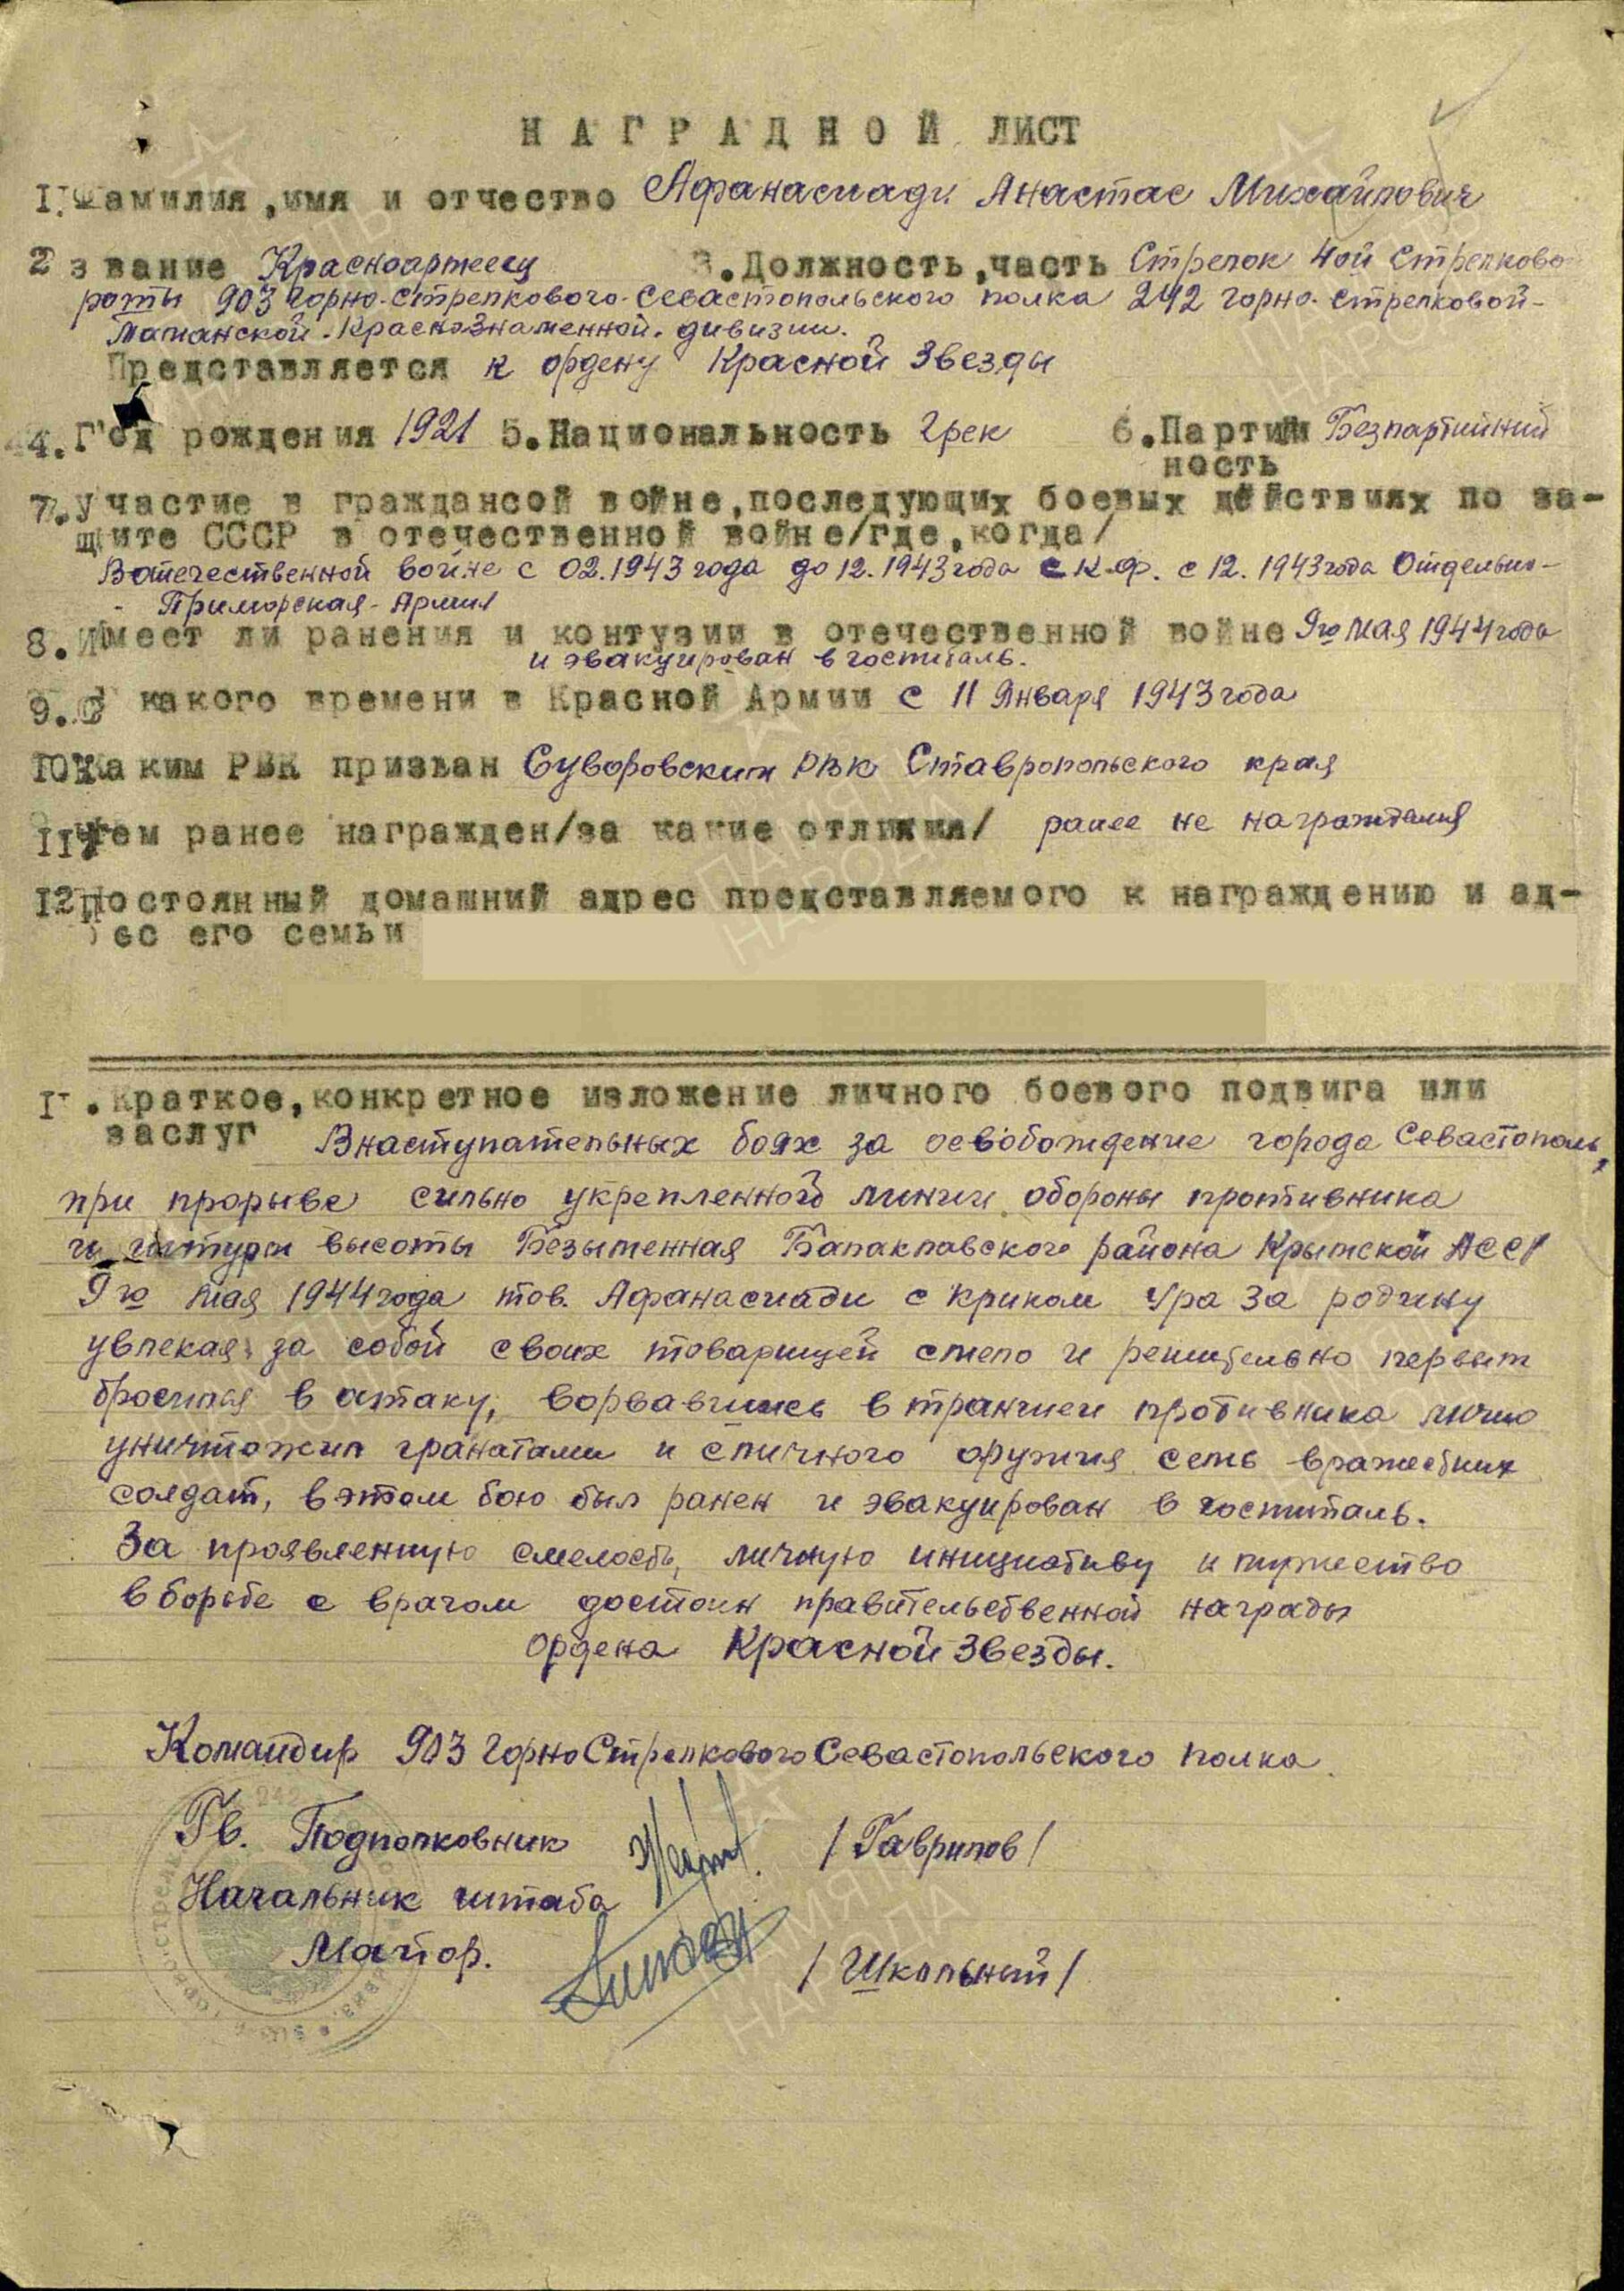 НАГРАДНОЙ ЛИСТ
1. Фамилия, имя и отчество Афанасиади Анастас Михайлович
2 звание Красноармеец 3. Должность, часть Стрелок 4ой Стрелково
роты 903 Горно-Стрелкового-Севастопольского полка 242 горно-стрелковой-
Таманской-Краснознаменной дивизии.
Представляется к ордену Красной Звезды
4. Год рождения 1921 5. Национальность Грек 6. Партий Безпартийний
ность
7. Участие в граждансой войне, последующих боевых действиях по за-
щите СССР в отечественной войне/где, когда/
В отечественной войне с 02.1943 года до 12.1943 года С.К.Ф. с 12.1943 года Отдельно-
- Приморская-Армия
8. Имеет ли ранения и контузии в отечественной войне 9го мая 1944 года
и эвакуирован в госпиталь.
9. С какого времени в Красной Армии с 11 Января 1943 года
10. Каким РВК призван Суворовским РВК Ставропольского края
11. Чем ранее награжден/за какие отличия/ ранее не награждался
12 Постоянный домашний адрес представляемого к награждению и ад-
рес его семьи
1 . Краткое, конкретное изложение личного боевого подвига или
заслуг В наступательных боях за освобождение города Севастополь,
при прорыве сильно укрепленной линии обороны противника
и штурм высоты Безыменная Балаклавского района Крымской АССР
9го мая 1944 года тов. Афанасиади с криком Ура За родину
увлекая за собой своих товарищей смело и решительно первым
бросился в атаку, ворвавшись в траншеи противника лично
уничтожил гранатами и с личного оружия семь вражеских
солдат, в этом бою был ранен и эвакуирован в госпиталь.
За проявленную смелость, личную инициативу и мужество
в борьбе с врагом достоин правительственной награды
ордена Красной Звезды.
Командир 903 Горно Стрелкового Севастопольского полка.
Гв. Подполковник /Гаврилов/
Начальник штаба
Майор. /Школьный/
ПАМЯТЬ НАРОДА